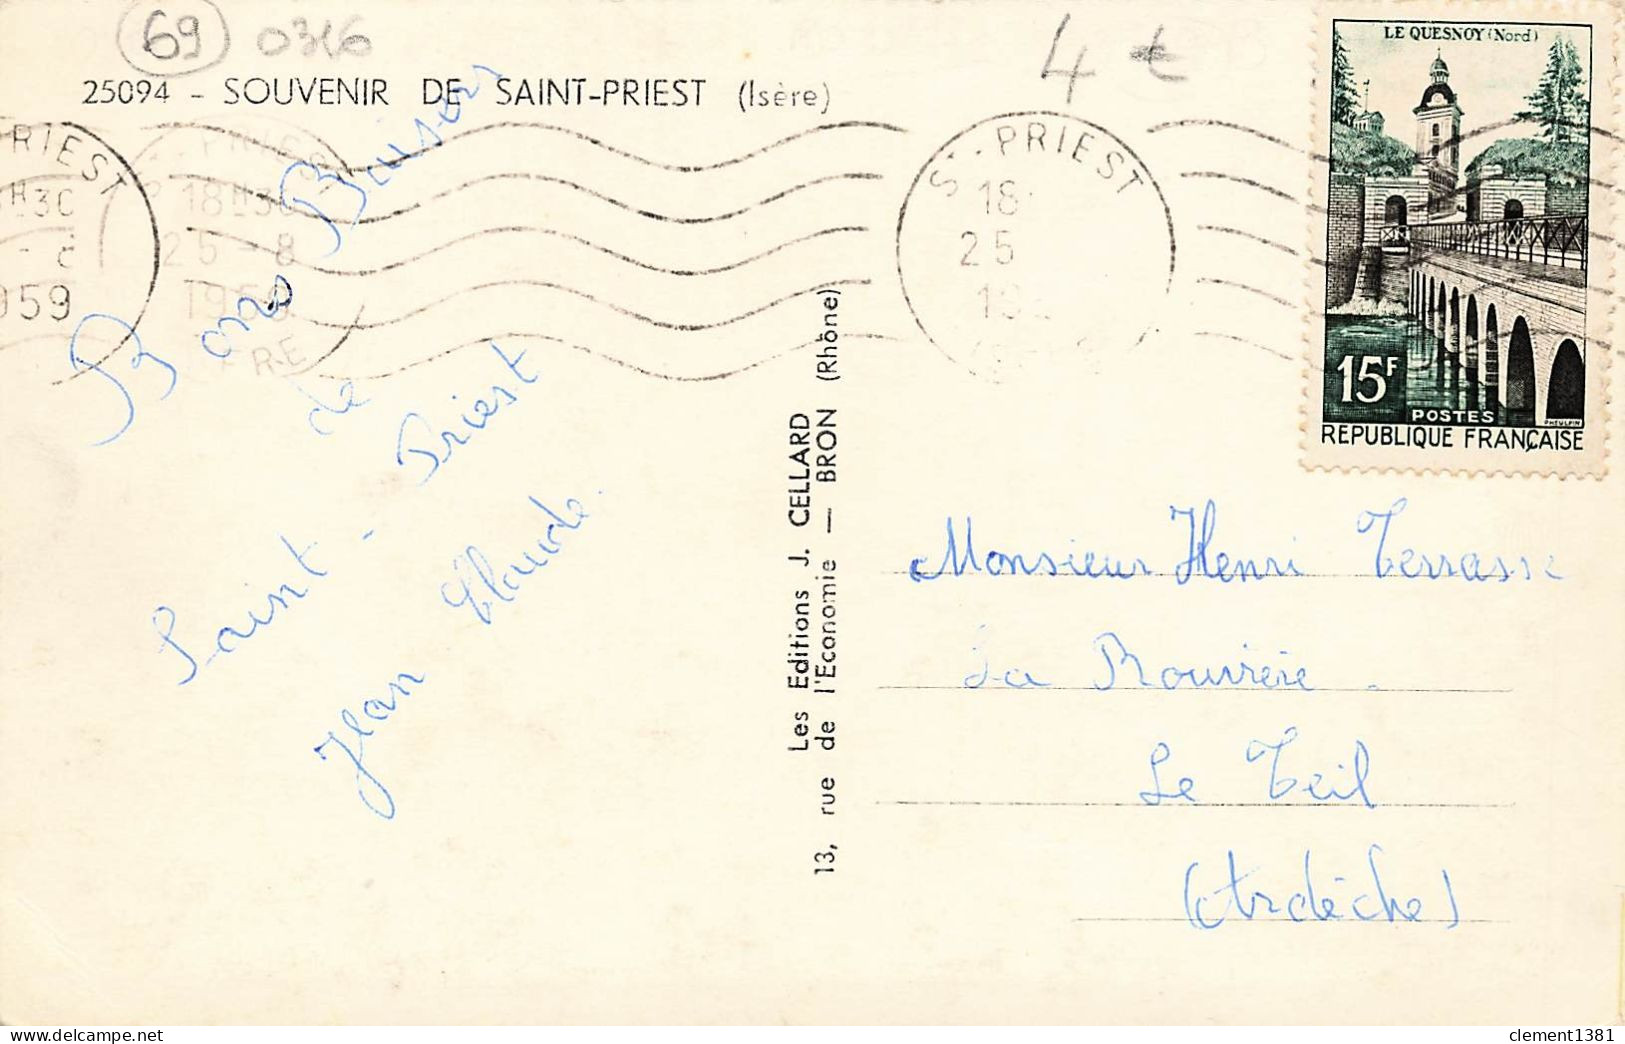 69 0316
4 €
25094 - SOUVENIR DE SAINT-PRIEST (Isère)
PRIEST
H30
1959
18H30
25-8
1959
ST-PRIEST
18
25
LE QUESNOY (Nord)
15F
POSTES
PHEULPIN
REPUBLIQUE FRANÇAISE
Bons Baisers
de
Saint-Priest
Jean Claude.
Les Editions J. CELLARD
13, rue de l'Economie — BRON (Rhône)
Monsieur Henri Terrasse
La Rouvière.
Le Teil
(Ardèche)
clement1381